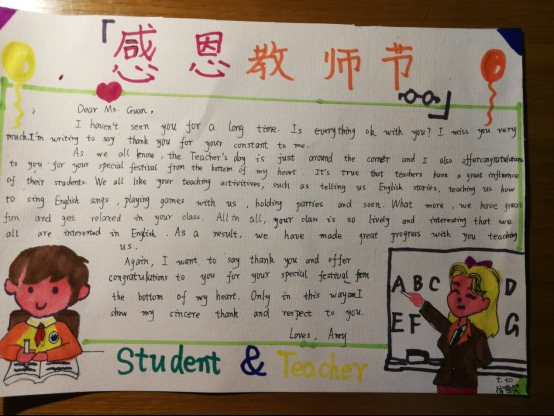 「感恩教师节」
Dear Ms. Guan,
I haven't seen you for a long time. Is everything ok with you? I miss you very
much. I'm writing to say thank you for your constant to me.
As we all know, the Teacher's day is just around the corner and I also offer congratulations
to you for your special festival from the bottom of my heart. It's true that teachers have a great influence
of their students. We all like your teaching activities, such as telling us English stories, teaching us how
to sing English songs, playing games with us, holding parties and soon. What more, we have great
fun and get relaxed in your class. All in all, your class is so lively and interesting that we
all are interested in English. As a result, we have made great progress with you teaching
us.
Again, I want to say thank you and offer
congratulations to you for your special festival from
the bottom of my heart. Only in this way can I
show my sincere thank and respect to you.
Loves, Amy
A B C D
E F G
Student & Teacher